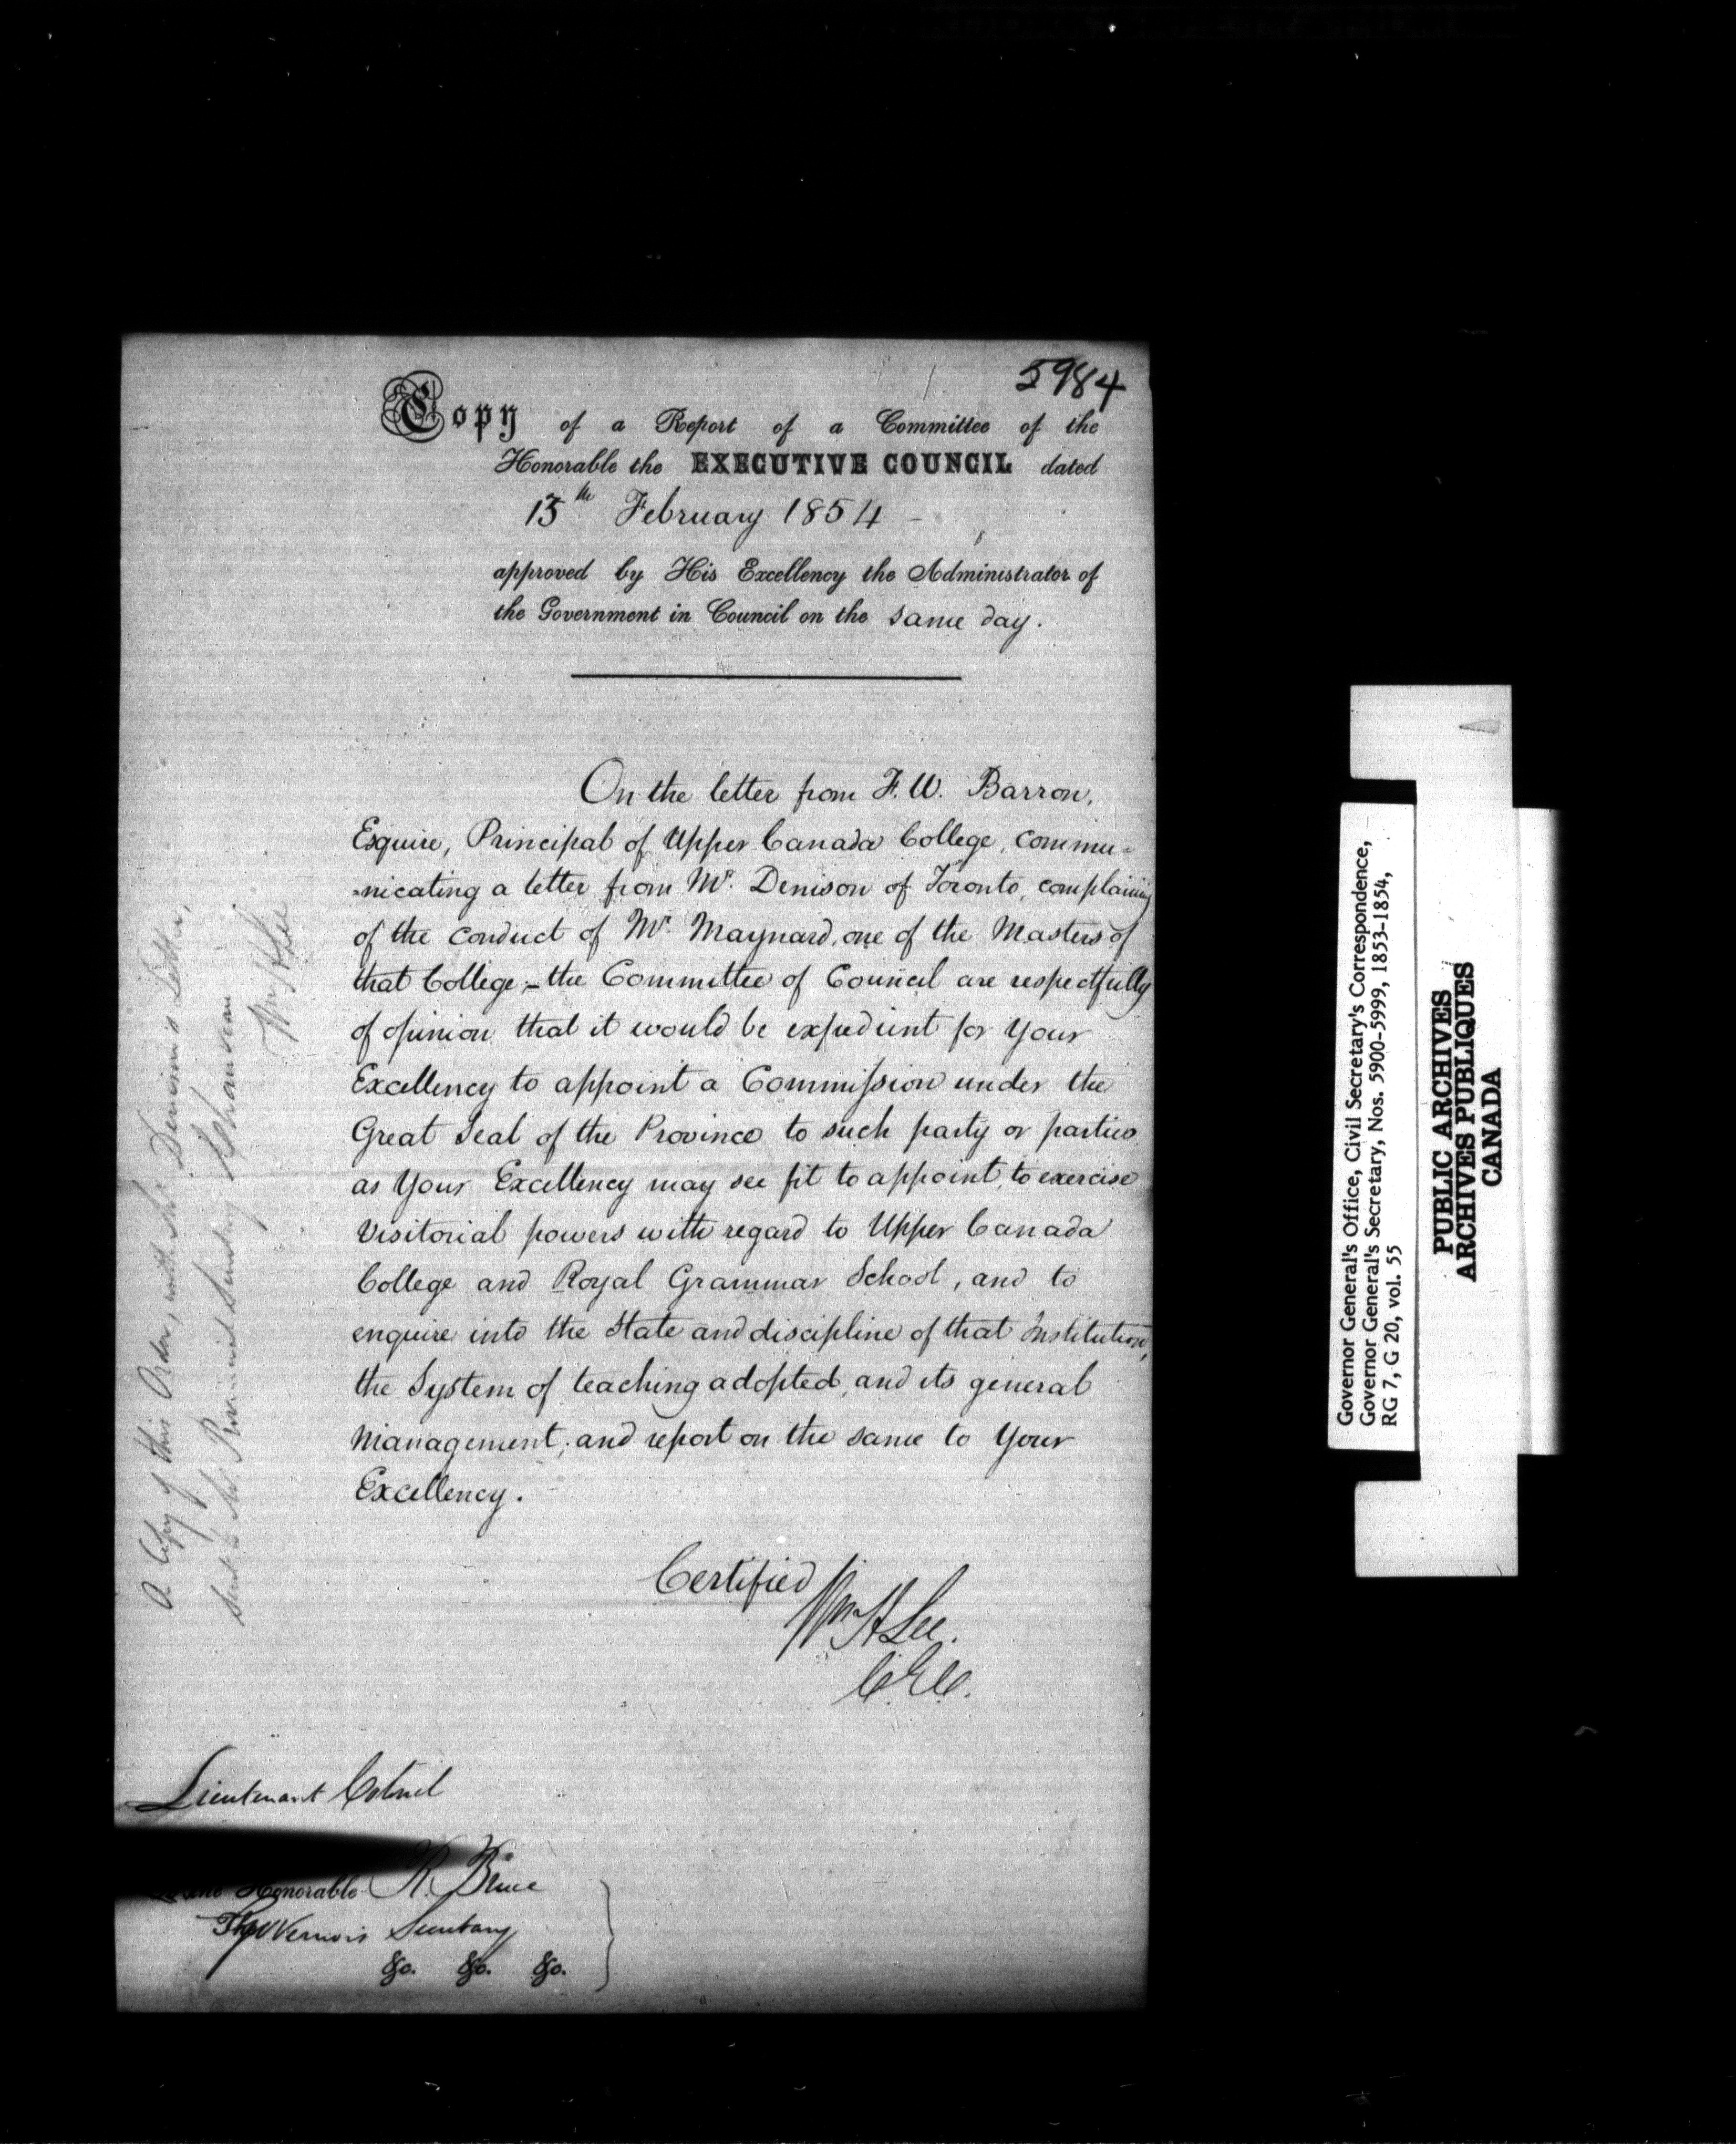 5984
Copy of a Report of a Committee of the
Honorable the EXECUTIVE COUNCIL dated
15th February 1854 -
approved by His Excellency the Administrator of
the Government in Council on the same day.
On the letter from F. W. Barron,
Esquire, Principal of Upper Canada College, commu=
=nicating a letter from Mr. Denison of Toronto, complaining
of the conduct of Mr. Maynard, one of the Masters of
that College;- the Committee of Council are respectfully
of opinion that it would be expedient for Your
Excellency to appoint a Commission under the
Great Seal of the Province to such party or parties
as Your Excellency may see fit to appoint, to exercise
Visitorial powers with regard to Upper Canada
College and Royal Grammar School, and to
enquire into the State and discipline of that Institution,
the System of teaching adopted, and its general
Management; and report on the same to Your
Excellency.
Certified
Wm H Lee.
C.E.C.
Lieutenant Colonel
Honorable R. Bruce
Governors Secretary
&c. &c. &c.
A Copy of this Order, with Mr. Denison's Letter,
sent to Mr. Provincial Secretary Chauveau
Wm H Lee
Governor General's Office, Civil Secretary's Correspondence,
Governor General's Secretary, Nos. 5900-5999, 1853-1854,
RG 7, G 20, vol. 55
PUBLIC ARCHIVES
ARCHIVES PUBLIQUES
CANADA